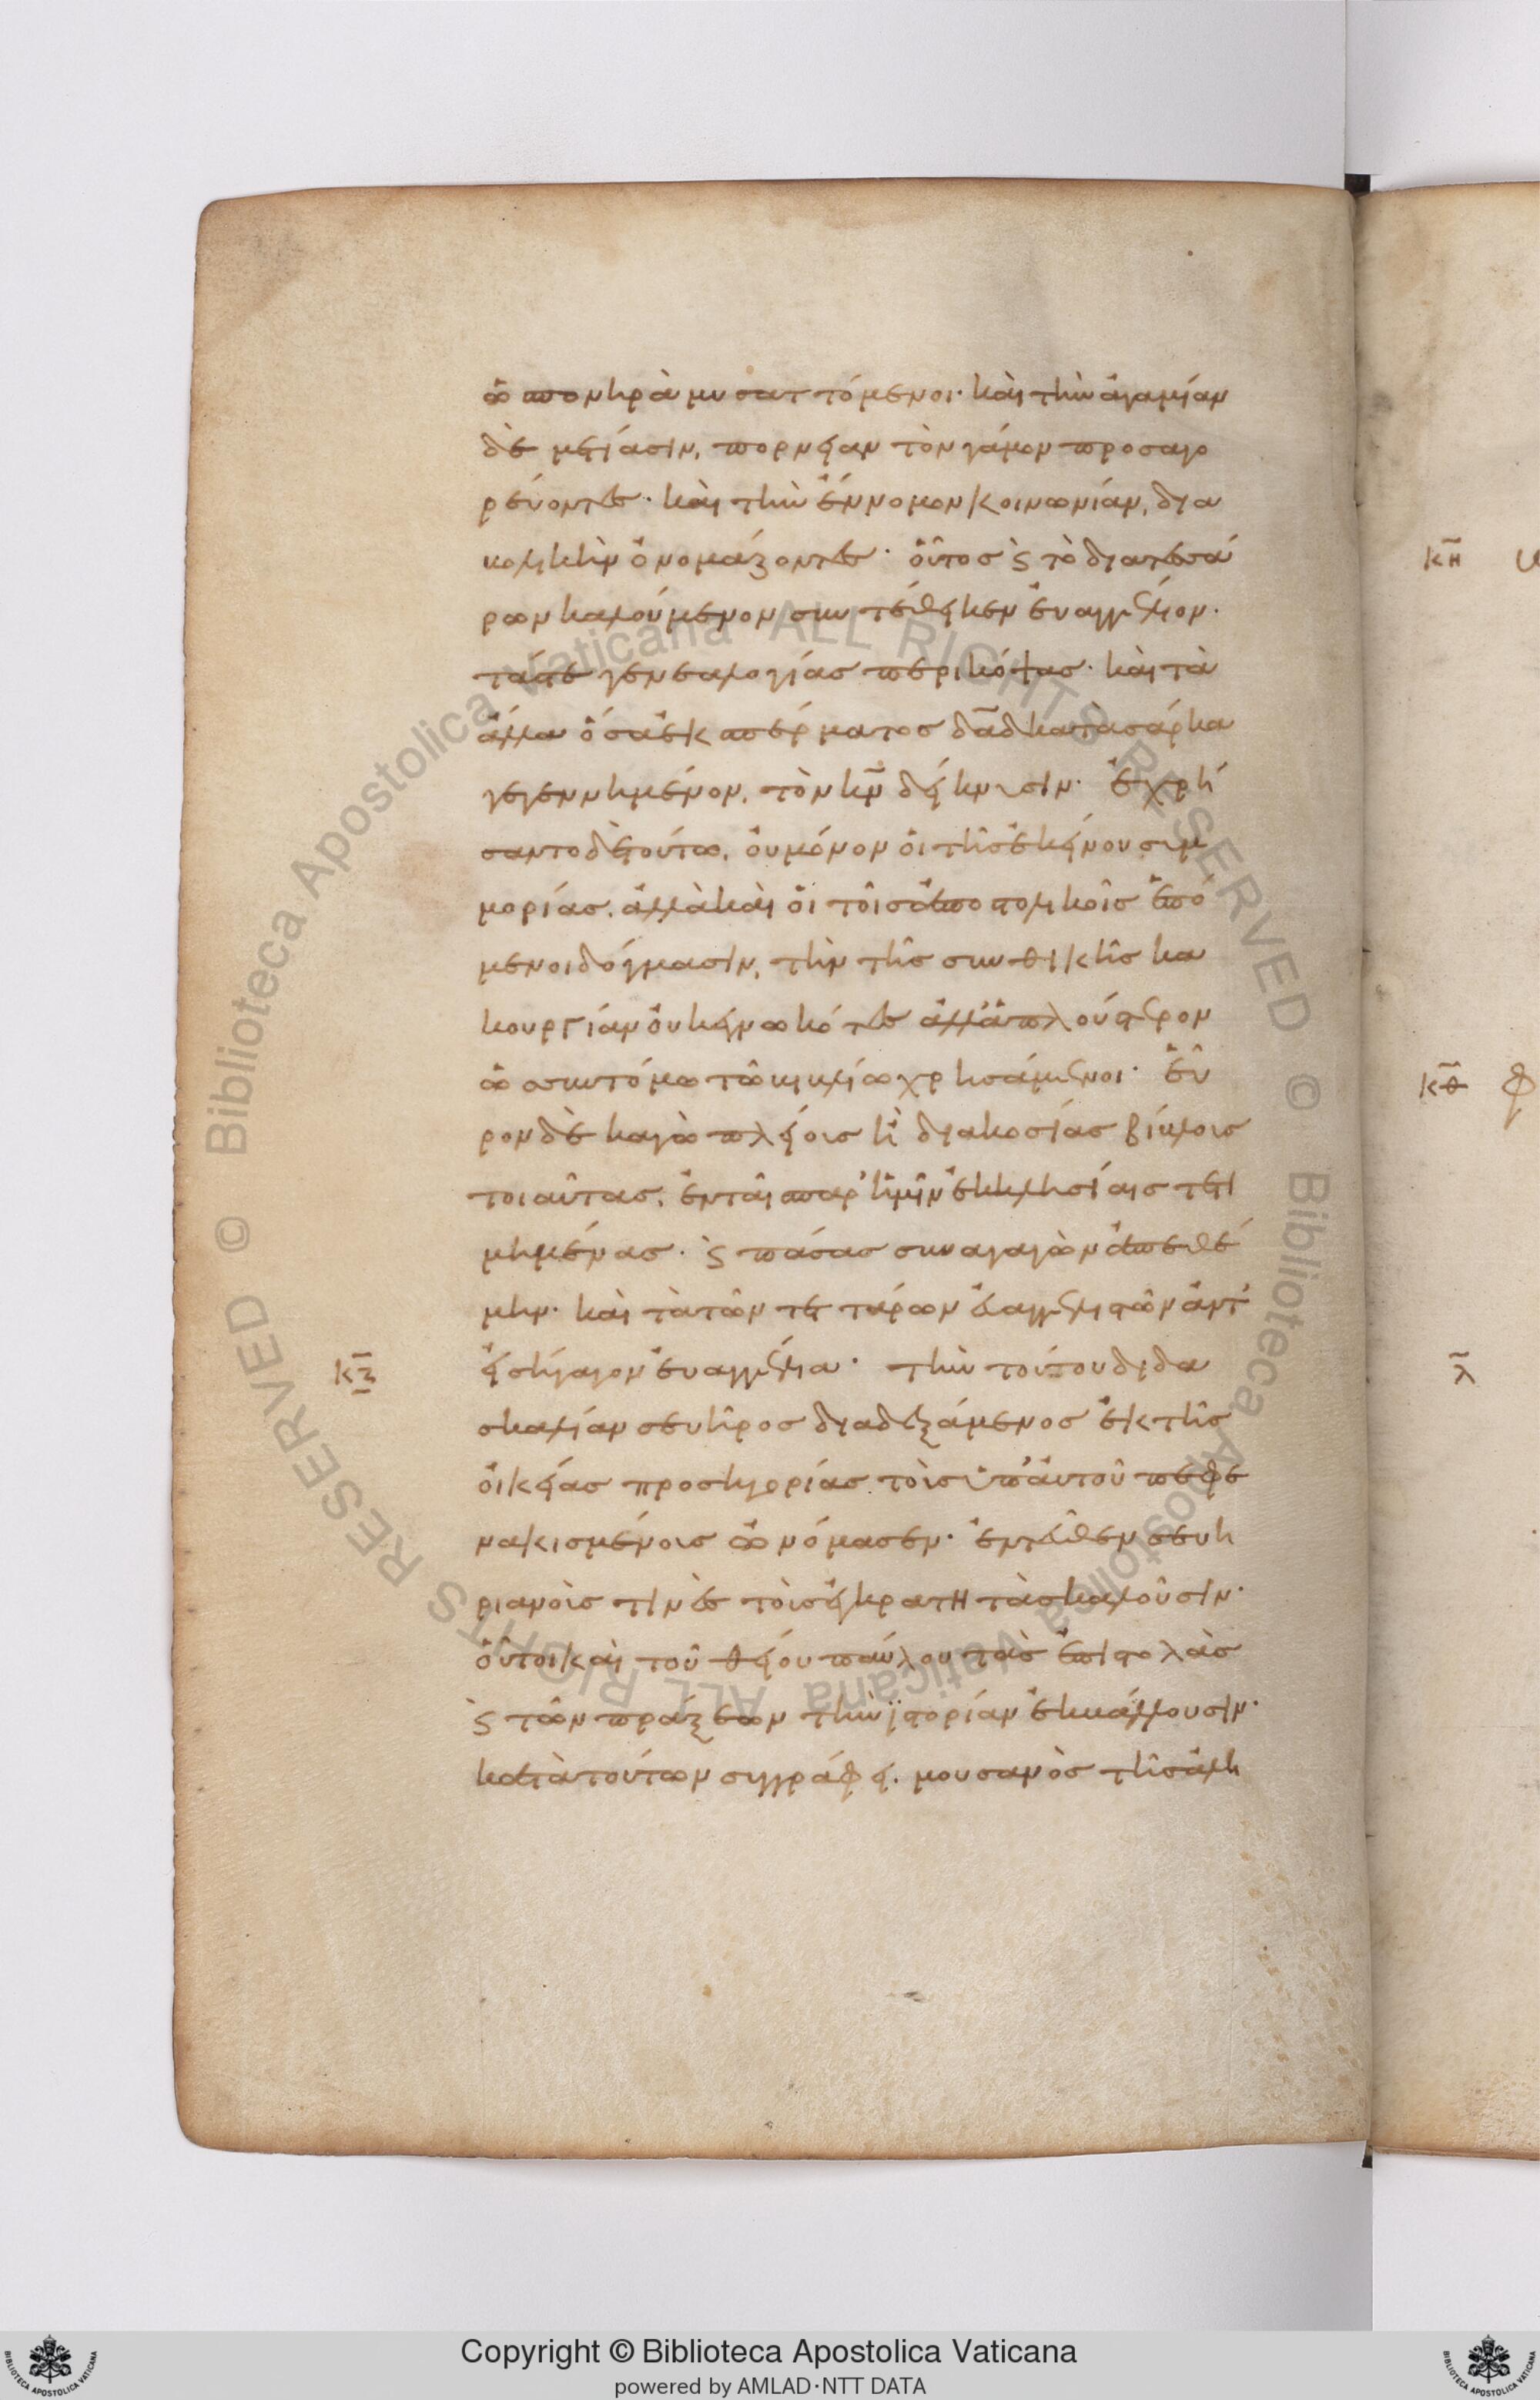 ὡς πονηρὰ μυσαττόμενοι· καὶ τὴν ἀγαμίαν
δὲ μετίασιν, πορνείαν τὸν γάμον προσαγο
ρεύοντες· καὶ τὴν ἔννομον κοινωνίαν, δια
βολικὴν ὀνομάζοντες· οὗτος ϛ τὸ διατεσσά
ρων καλούμενον συντέθεικεν εὐαγγέλιον.
τάς τε γενεαλογίας περικόψας· καὶ τὰ
ἄλλα ὅσα ἐκ σπέρματος δα̅δ κατὰ σάρκα
γεγεννημένον, τὸν κν̅ δείκνυσιν· ἐχρή
σαντο δὲ τούτω, οὐ μόνον οἱ τῆς ἐκείνου συμ
μορίας, ἀλλὰ καὶ οἱ τοῖς ἀποστολικοῖς ἑπό
μενοι δόγμασιν, τὴν τῆς συνθήκης κα
κουργίαν οὐκ ἐγνωκότες ἀλλ' ἁπλούστερον
ὡς συντόμω τῶ βιβλίω χρησάμενοι· εὗ
ρον δὲ καγὼ πλείους ἢ διακοσίας βίβλους
τοιαύτας, ἐν ταῖς παρ' ἡμῖν ἐκκλησίαις τετι
μημένας· ϛ πάσας συναγαγὼν ἀπεθέ
μην· καὶ τὰ τῶν τεττάρων εὐαγγελιστῶν ἀντ'
κ̅ζ̅ εἰσήγαγον εὐαγγέλια· τὴν τούτου διδα
σκαλίαν σευῆρος διαδεξάμενος ἐκ τῆς
οἰκείας προσηγορίας τοὺς ὑπ' αὐτοῦ πεφε
νακισμένους ὠνόμασεν· ἐντεῦθεν σευη
ριανούς τινὲς τοὺς ἐγκρατητὰς καλοῦσιν·
οὗτοι καὶ τοῦ θείου παύλου τὰς ἐπιστολὰς
ϛ τῶν πράξεων τὴν ἱστορίαν ἐκβάλλουσιν·
κατὰ τούτων συγγράφει. μουσανὸς τῆς ἀλη
κ̅η̅
κ̅θ̅
λ̅
Copyright © Biblioteca Apostolica Vaticana
powered by AMLAD·NTT DATA